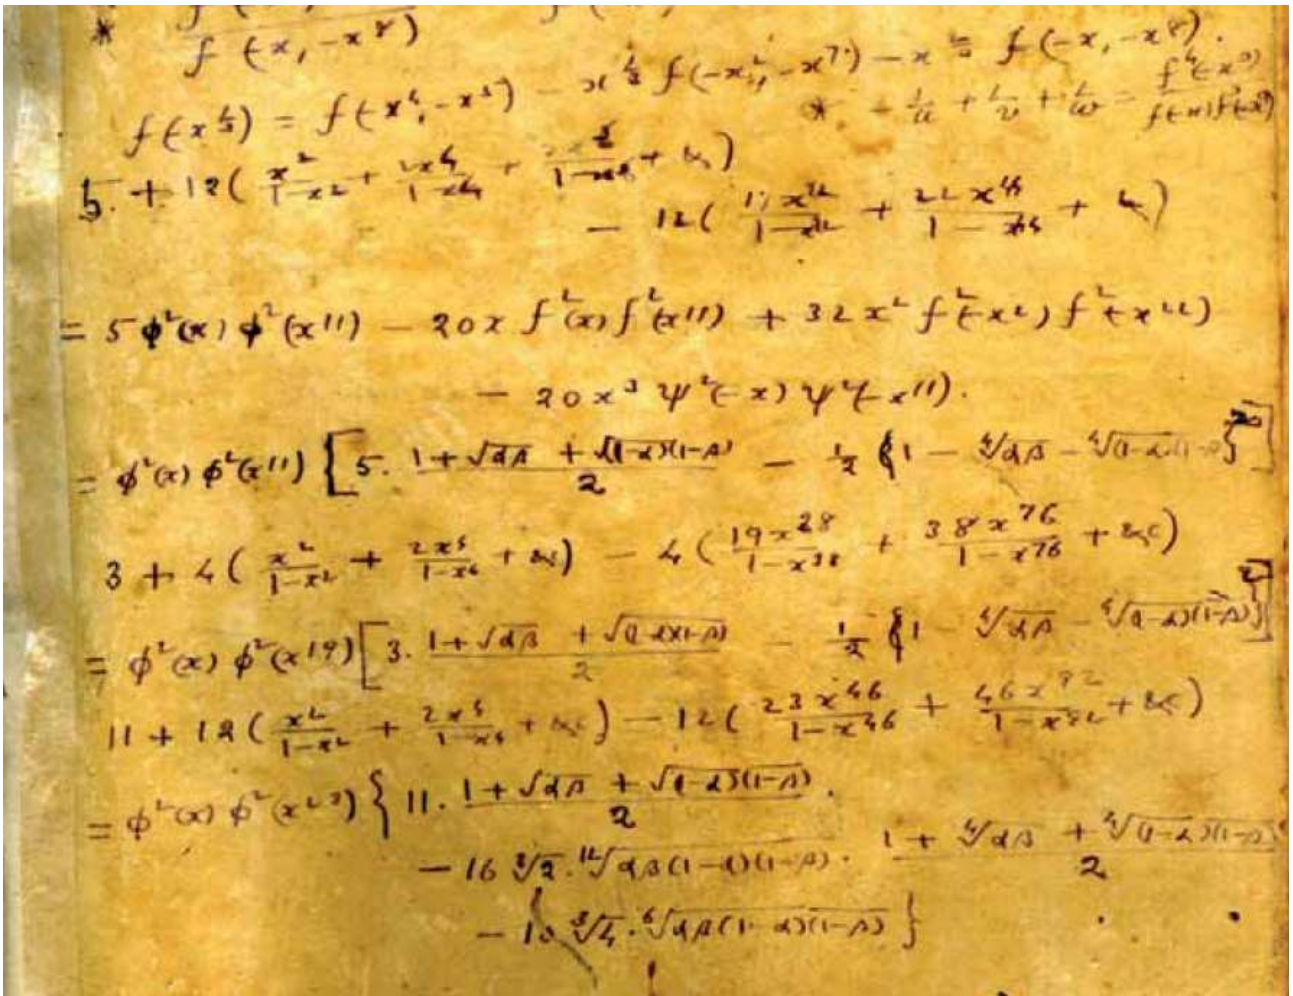 *
f(-x, -x⁸)
f(-x^{1/3}) = f(-x⁴, -x⁵) - x^{1/3} f(-x², -x⁷) - x f(-x, -x⁸).
* 1/u + 1/v + 1/w = f⁴(-x³) / f(-x) f(-x⁹)
5. + 12( x²/1-x² + 2x⁴/1-x⁴ + /1-x⁶ + &c)
- 12( 11x²²/1-x²² + 22x⁴⁴/1-x⁴⁴ + &c)
= 5φ²(x) φ²(x¹¹) - 20x f²(x) f²(x¹¹) + 32x² f²(-x²) f²(-x²²)
- 20x³ ψ²(-x) ψ²(-x¹¹).
= φ²(x) φ²(x¹¹) {[5. 1+√αβ + √(1-α)(1-β) / 2 - ½ {1 - ∜αβ - ∜(1-α)(1-β)}²]
3 + 4( x²/1-x² + 2x⁴/1-x⁴ + &c) - 4( 19x³⁸/1-x³⁸ + 38x⁷⁶/1-x⁷⁶ + &c)
= φ²(x) φ²(x¹⁹) [3. 1+√αβ + √(1-α)(1-β) / 2 - ½ {1 - ∜αβ - ∜(1-α)(1-β)}²]
11 + 12( x²/1-x² + 2x⁴/1-x⁴ + &c) - 12( 23x⁴⁶/1-x⁴⁶ + 46x⁹²/1-x⁹² + &c)
= φ²(x) φ²(x²³) { 11. 1+√αβ + √(1-α)(1-β) / 2.
- 16 ∛2. ¹²√αβ(1-α)(1-β). 1 + ∜αβ + ∜(1-α)(1-β) / 2
- 10 ∛4. ⁶√αβ(1-α)(1-β) }